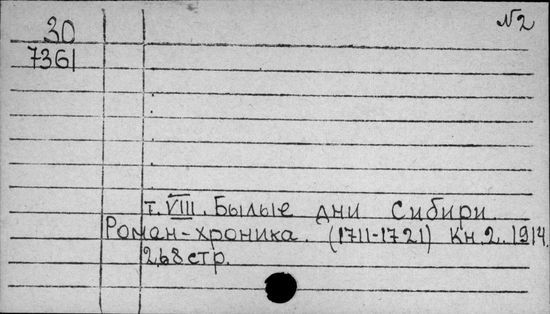 №2
30
7361
т. VIII. Былые дни Сибири.
Роман-хроника. (1711-1721) Кн. 2. 1914.
268 стр.